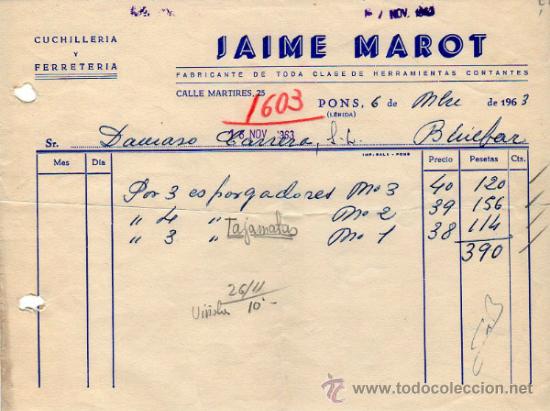 7 NOV. 1963
CUCHILLERIA
Y
FERRETERIA
JAIME MAROT
FABRICANTE DE TODA CLASE DE HERRAMIENTAS CORTANTES
CALLE MARTIRES, 25
1603
PONS, 6 de de 1963
(LÉRIDA)
16 NOV. 1963
Sr. Damaso Carrera, S.L.
IMP. SALA - PONS
Mes Día Precio Pesetas Cts.
Por 3 esporgadores No 3 40 120
" 4 " No 2 39 156
" 3 " Tajamatas No 1 38 114
390
26/11
10'-
www.todocoleccion.net